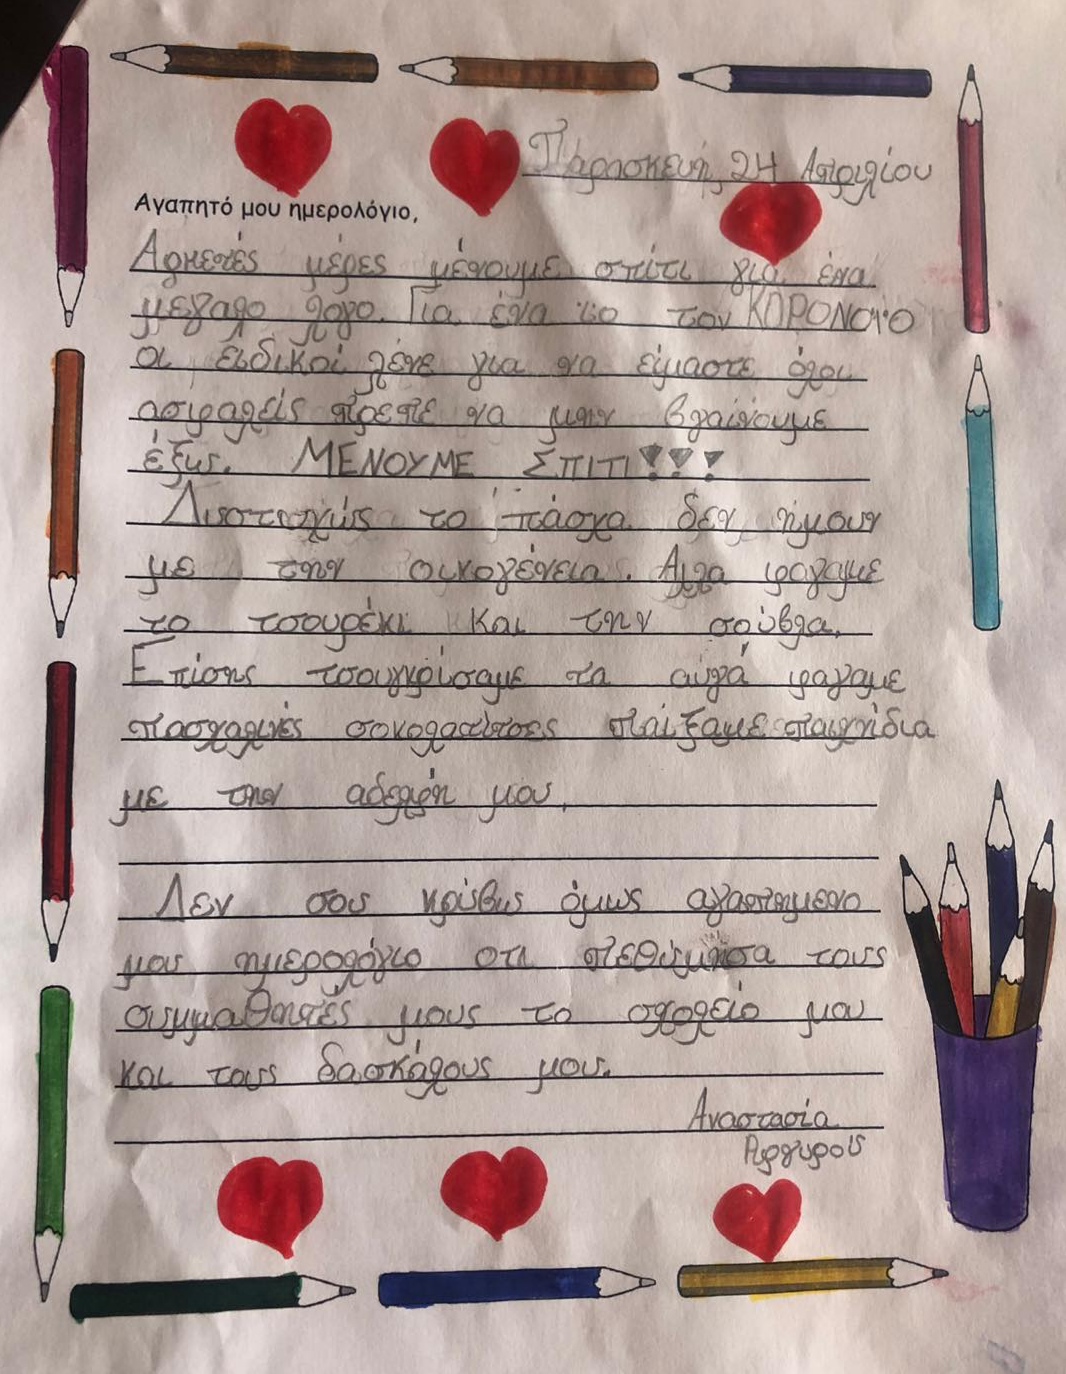 Παρασκευή 24 Απριλίου
Αγαπητό μου ημερολόγιο,
Αρκετές μέρες μένουμε σπίτι για ένα
μεγαλο λογο. Για ένα ιο τον ΚΟΡΟΝΟΙΟ
οι ειδικοί λένε για να είμαστε όλοι
ασφαλείς πρεπε να μην βγαίνουμε
έξω. ΜΕΝΟΥΜΕ ΣΠΙΤΙ!!!
Διστιχώς το πάσχα δεν ήμουν
με την οικογένεια. Αλλα φαγαμε
το τσουρέκι και την σούβλα.
Επίσης τσουγκρίσαμε τα αυγά φαγαμε
πασχαλινές σοκολατίτσες παίξαμε παιχνίδια
με την αδελφή μου.
Δεν σου κρύβω όμως αγαπημενο
μου ημερολόγιο οτι πεθύμησα τους
συμμαθητές μους το σχολείο μου
και τους δασκάλους μου.
Αναστασία
Αργυρού